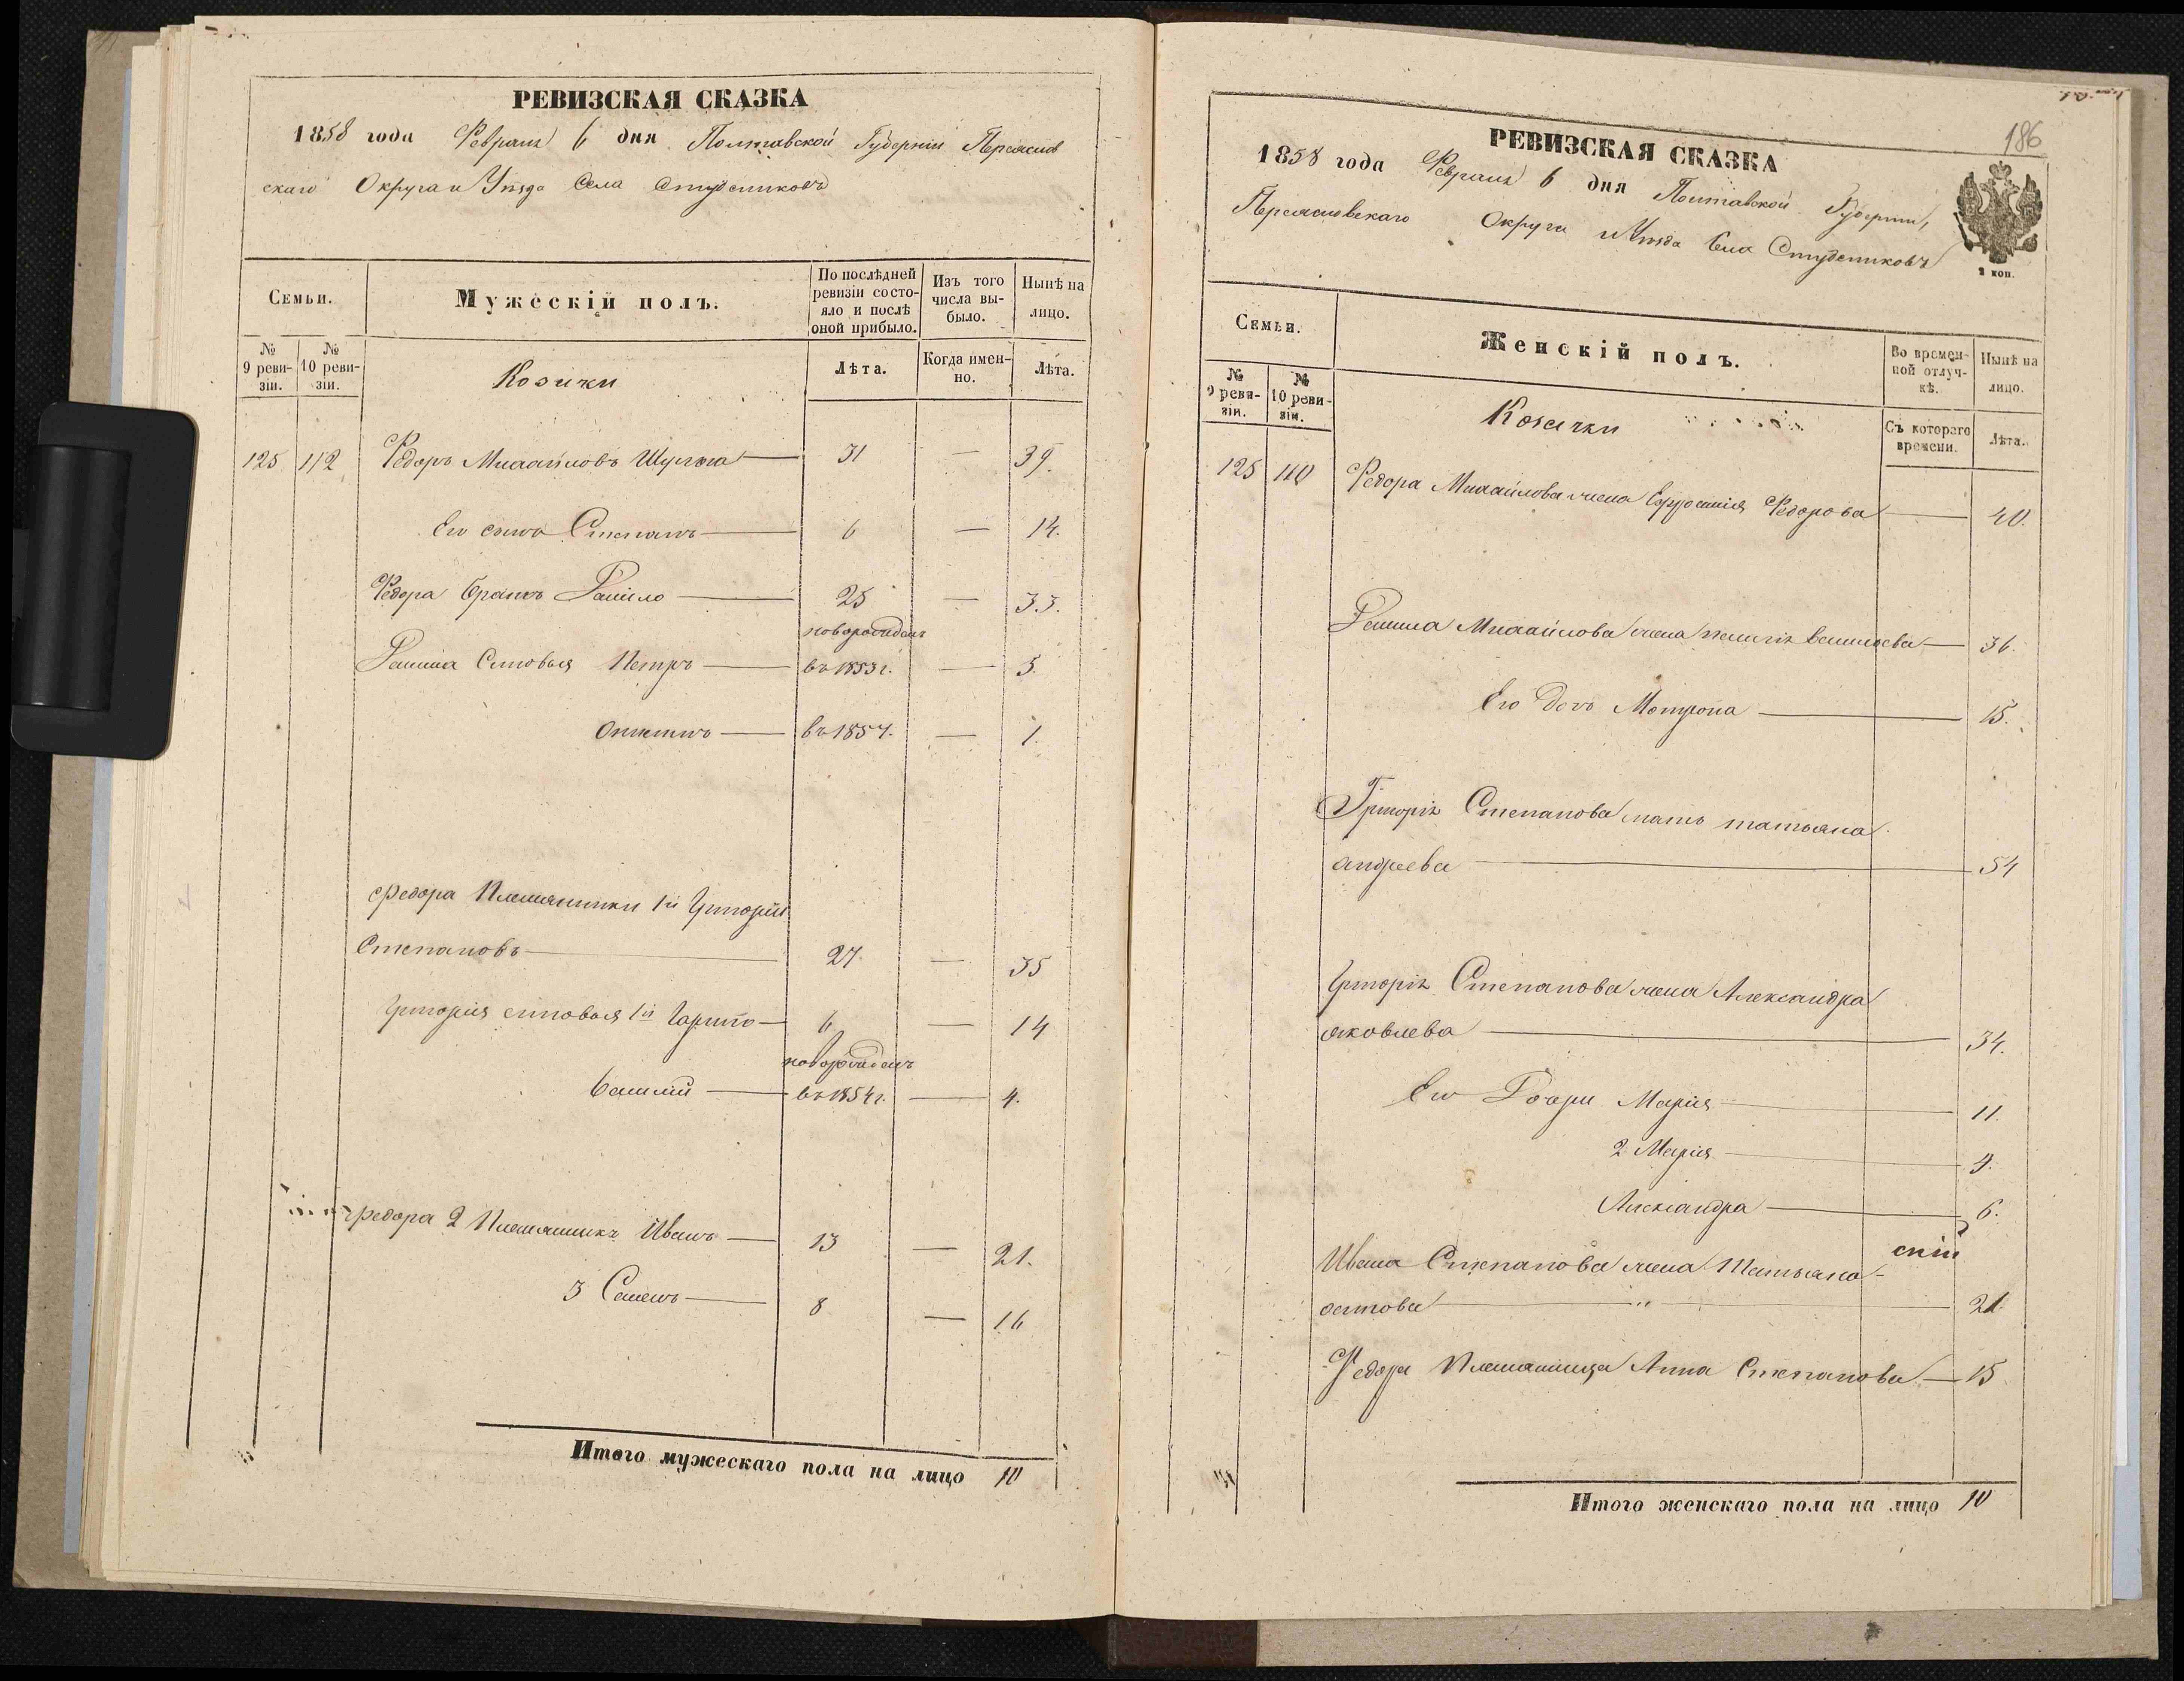 РЕВИЗСКАЯ СКАЗКА
1858 года Февраля 6 дня Полтавской Губернии Переяслов
скаго Округа и Уѣзда Села Студениковъ
Семьи.
Мужескій полъ.
По послѣдней ревизіи состо-
яло и послѣ
оной прибыло.
Изъ того
числа вы-
было.
Нынѣ на
лицо.
№
9 реви-
зіи.
№
10 реви-
зіи.
Козаки
Лѣта.
Когда имен-
но.
Лѣта.
125 112 Федоръ Михайловъ 31 — 39.
Его сынъ Степанъ 6 — 14.
Федора братъ Данило 25 — 33.
новорожденъ
Данила сыновья Петръ въ 1853 г. — 5.
въ 1857. — 1.
Федора Племянники 1й Григорій
Степановъ 27 — 35
Григорія сыновья 1й 6 — 14
новорожденъ
Василій въ 1854 г. — 4.
Федора 2 Племянникъ Иванъ — 13 — 21.
3 Семенъ — 8 — 16
Итого мужескаго пола на лицо 10
186
РЕВИЗСКАЯ СКАЗКА
1858 года Февраля 6 дня Полтавской Губерніи,
Переясловскаго Округа и Уѣзда Села Студениковъ
2 коп.
Семьи.
Женскій полъ.
Во времен-
ной отлуч-
кѣ.
Нынѣ на
лицо.
№
9 реви-
зіи.
№
10 реви-
зіи.
Козачки
Съ котораго
времени.
Лѣта.
125 Федора Михайлова жена Ефросинія Федорова 40.
Данила Михайлова жена Васильева 36.
Его дочь Мотрона 15.
Григорія Степанова мать татьяна
андреева 54
Григорія Степанова жена Александра
яковлева 34.
Его Дочери Марія 11.
2 Марія
Александра 6.
Ивана Степанова жена Татьяна
21
Федора Племянница Анна Степанова 15
Итого женскаго пола на лицо 10